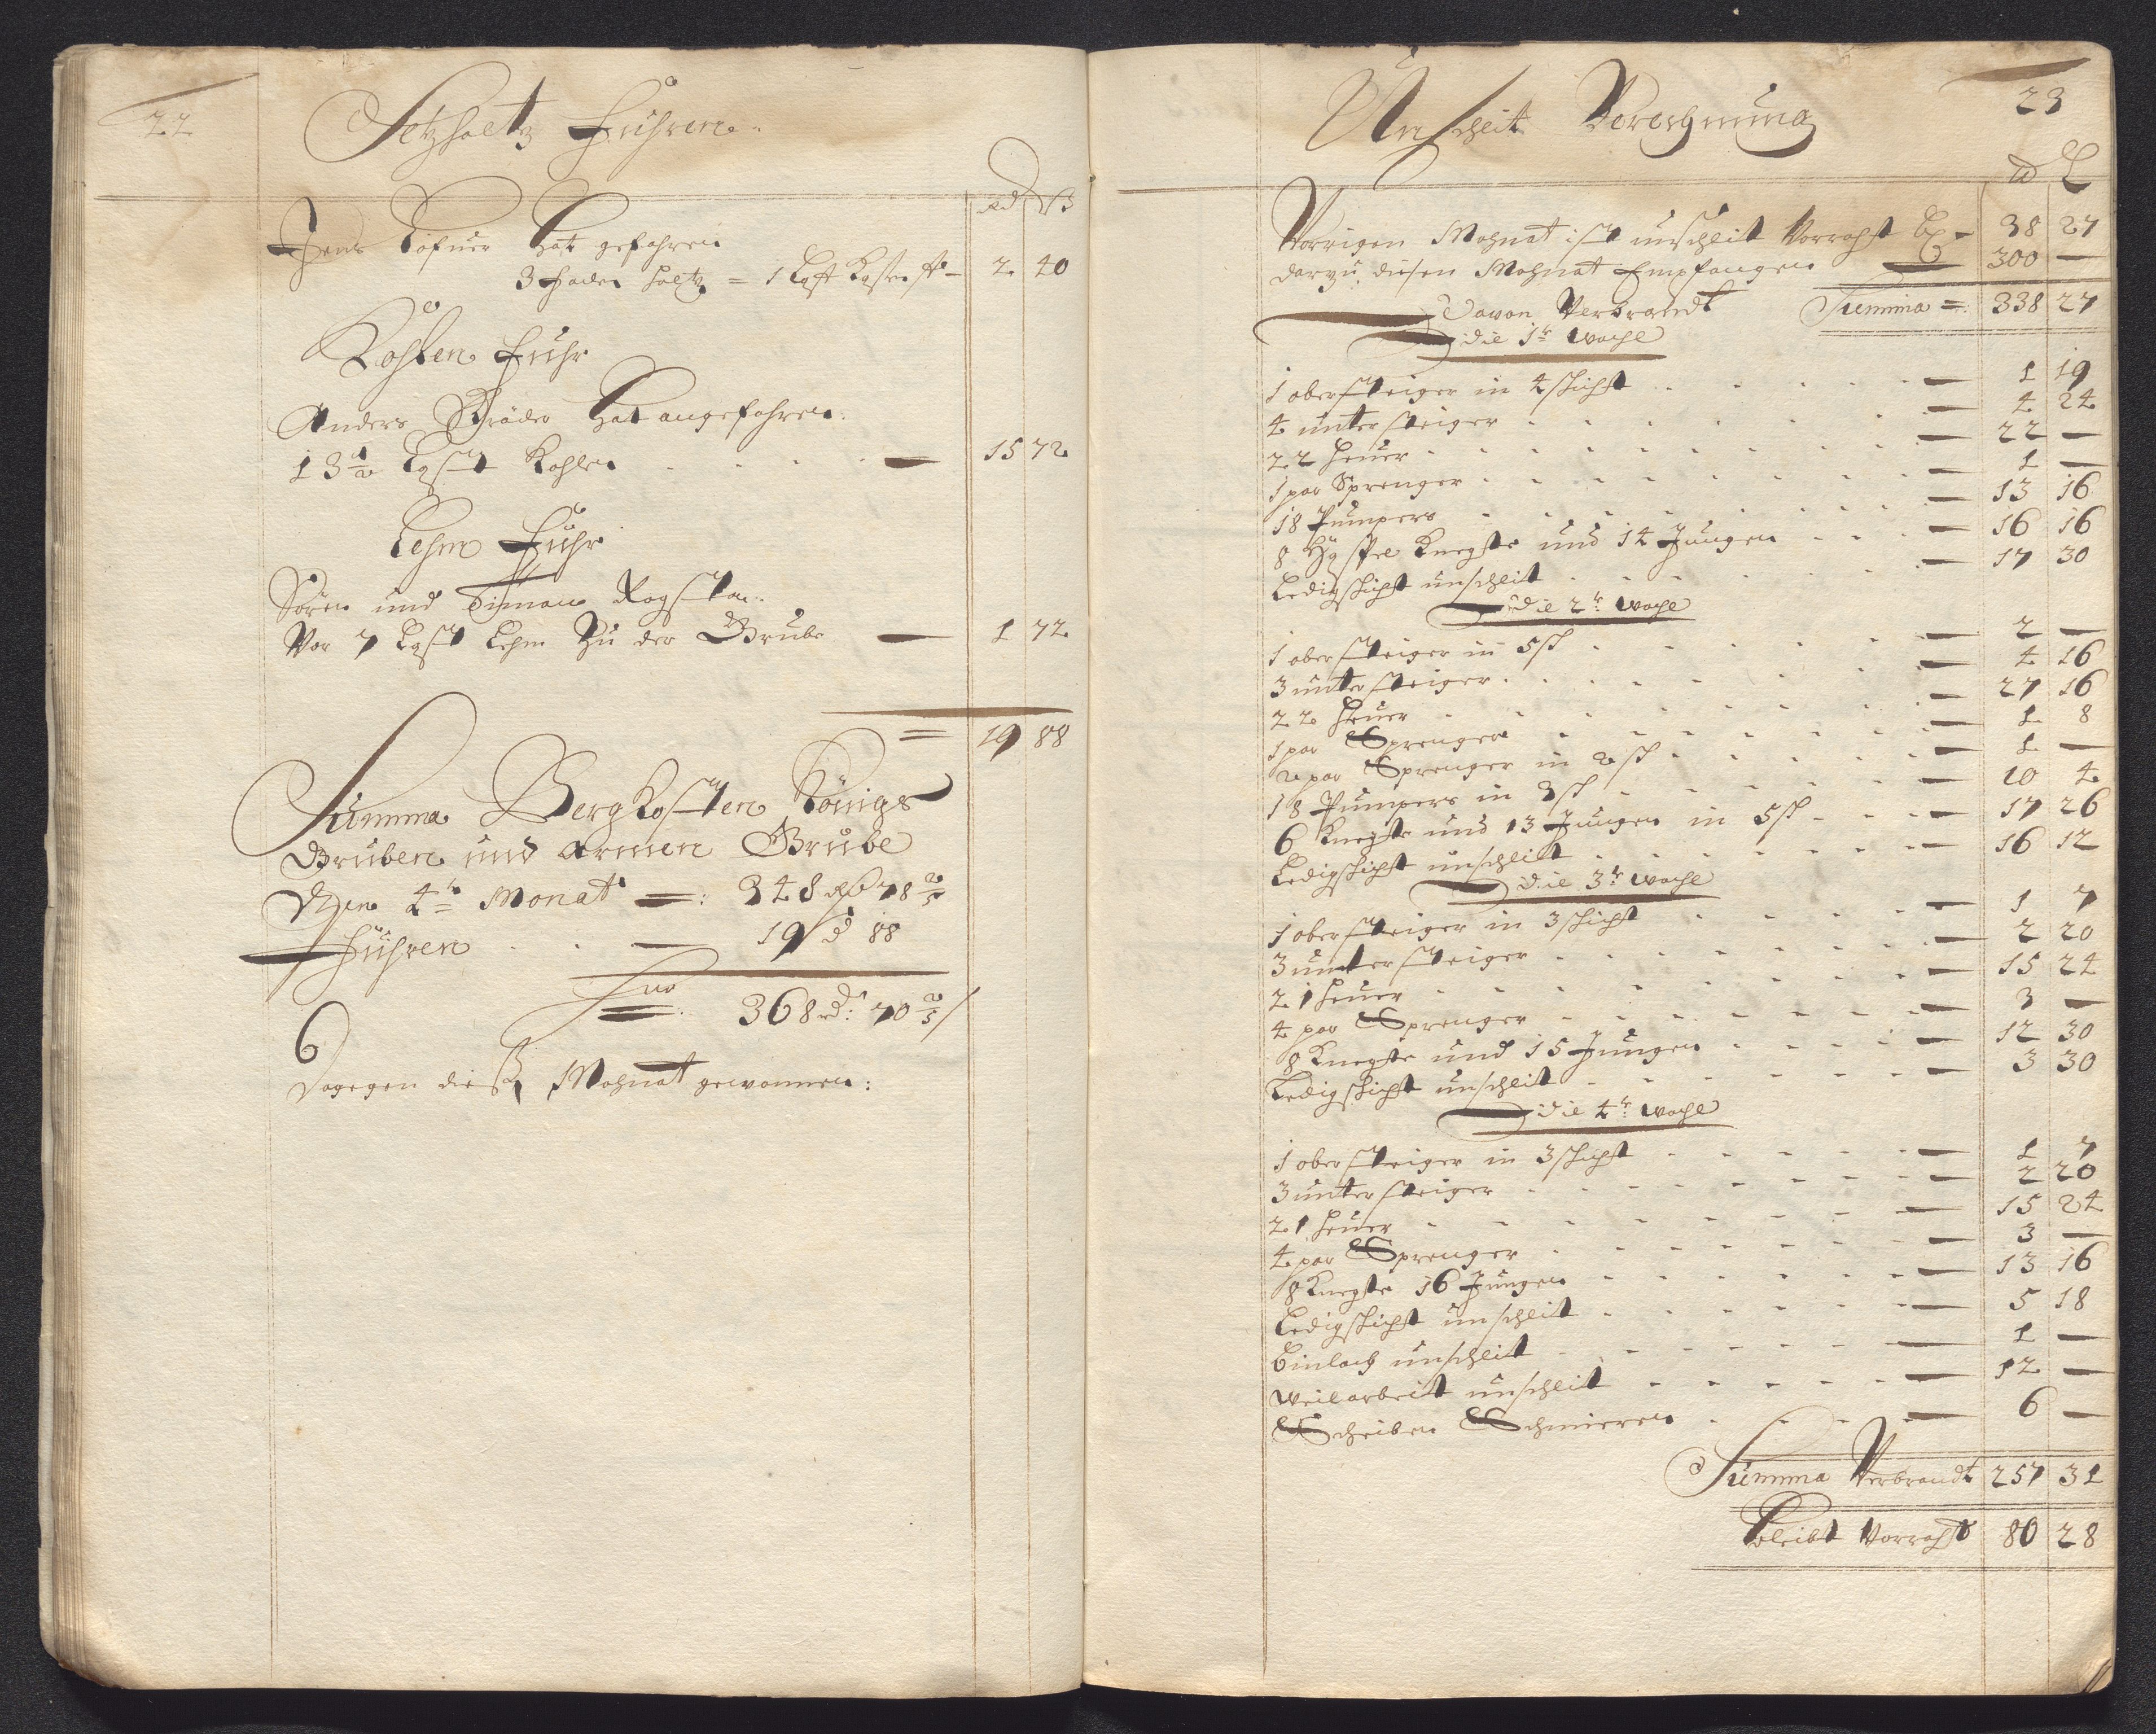 22
Setzholtz Fuhren
Rd ß
Jens Töfner hat gefahren
3 Faden holtz = 1 Lest 2 40
Kohlen Fuhr
Anders Bröder hat angefahren
13 1/2 Lest Kohlen 15 72
Lehm Fuhr
Sören und Simon
Vor 7 Lest Lehm Zu der Grube 1 72
= 19 88
Summa Bergkosten Königs
Gruben und armen Grube
Den 4te Monat =: 348 Rd 78 2/5
Führen 19 d 88
= 368 rd: 70 2/5
Dagegen diesen Mohnat gewonnen:
23
Unschleit Berechnung
℔ L
Vorrigen Mohnat ist unschleit Vorraht 38 27
darzu diesen Mohnat Empfangen 300 —
Davon Verbrandt Summa = 338 27
die 1te woche
1 obersteiger in 4 schicht 1 19
4 untersteiger 4 24
22 heuer 22 —
1 par Sprenger 1 —
18 Pumpers 13 16
8 Knegte und 14 Jungen 16 16
Ledigschicht unschleit 17 30
die 2te woche
1 obersteiger in 5 sch 2 —
3 untersteiger 4 16
22 heuer 27 16
1 par Sprenger 1 8
2 par Sprenger in 2 sch 1 —
18 Pumpers in 3 sch 10 4
6 Knegte und 13 Jungen in 5 sch 17 26
Ledigschicht unschleit 16 12
die 3te woche
1 obersteiger in 3 schicht 1 7
3 untersteiger 2 20
21 heuer 15 24
4 par Sprenger 3 —
8 Knegte und 15 Jungen 12 30
Ledigschicht unschleit 3 30
die 4te woche
1 obersteiger in 3 schicht 1 7
3 untersteiger 2 20
21 heuer 15 24
4 par Sprenger 3 —
8 Knegte 16 Jungen 13 16
Ledigschicht unschleit 5 18
unschleit 1 —
weilarbeit unschleit 12 —
Scheiben Schmieren 6 —
Summa Verbrandt 257 31
bleibt Vorraht 80 28